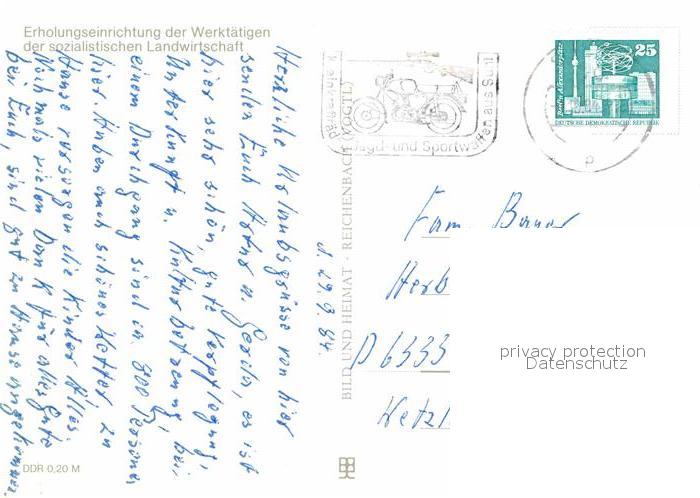 Erholungseinrichtung der Werktätigen
der sozialistischen Landwirtschaft
Herzliche Urlaubsgrüsse von hier
senden Euch Horst u. Gerda, es ist
hier sehr schön, gute Verpflegung,
Unterkunft u. Kulturbetreuung, bei
einem Durchgang sind in 800 Personen
hier. Haben auch schönes Wetter, zu
Hause versorgen die Kinder Alles.
Nochmals vielen Dank für alles Gute
bei Euch, sind gut zu Hause angekommen.
d. 29.9.84.
DDR 0,20 M
BILD UND HEIMAT · REICHENBACH (VOGTL)
Jagd- und Sportwaffen aus Suhl
25
Berlin, Alexanderplatz
DEUTSCHE DEMOKRATISCHE REPUBLIK
Fam. Bauer
D 6333
Wetzl
privacy protection
Datenschutz